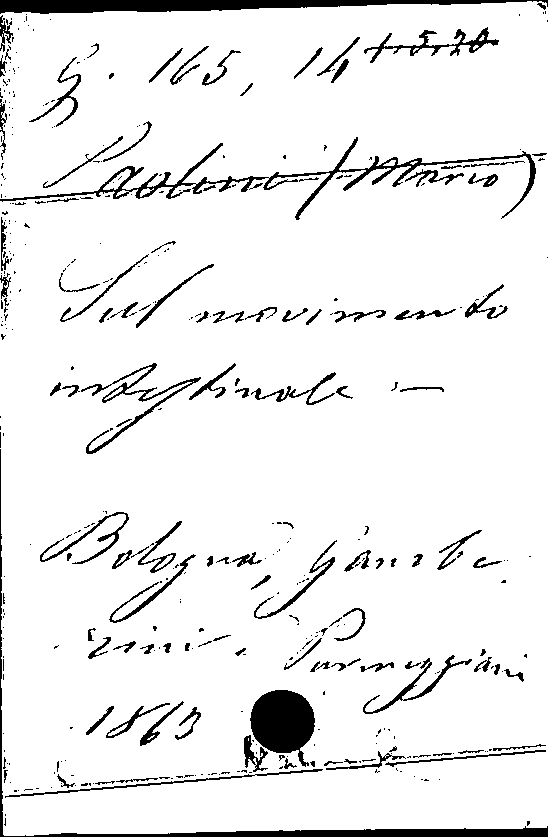 G. 165, 14 + 5, 20
Paolini (Marco)
Sul movimento
intestinale —
Bologna, Gambe
rini e Parmeggiani
1863